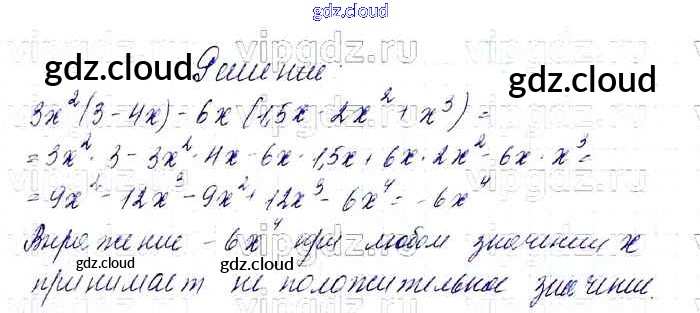 gdz.cloud
vipgdz.ru
gdz.cloud Решение: gdz.cloud
3x²(3-4x)-6x(1,5x-2x²+x³)=
=3x²·3-3x²·4x-6x·1,5x+6x·2x²-6x·x³=
=9x²-12x³-9x²+12x³-6x⁴=-6x⁴
Выражение -6x⁴ при любом значении x
gdz.cloud gdz.cloud
принимает не положительное значение.